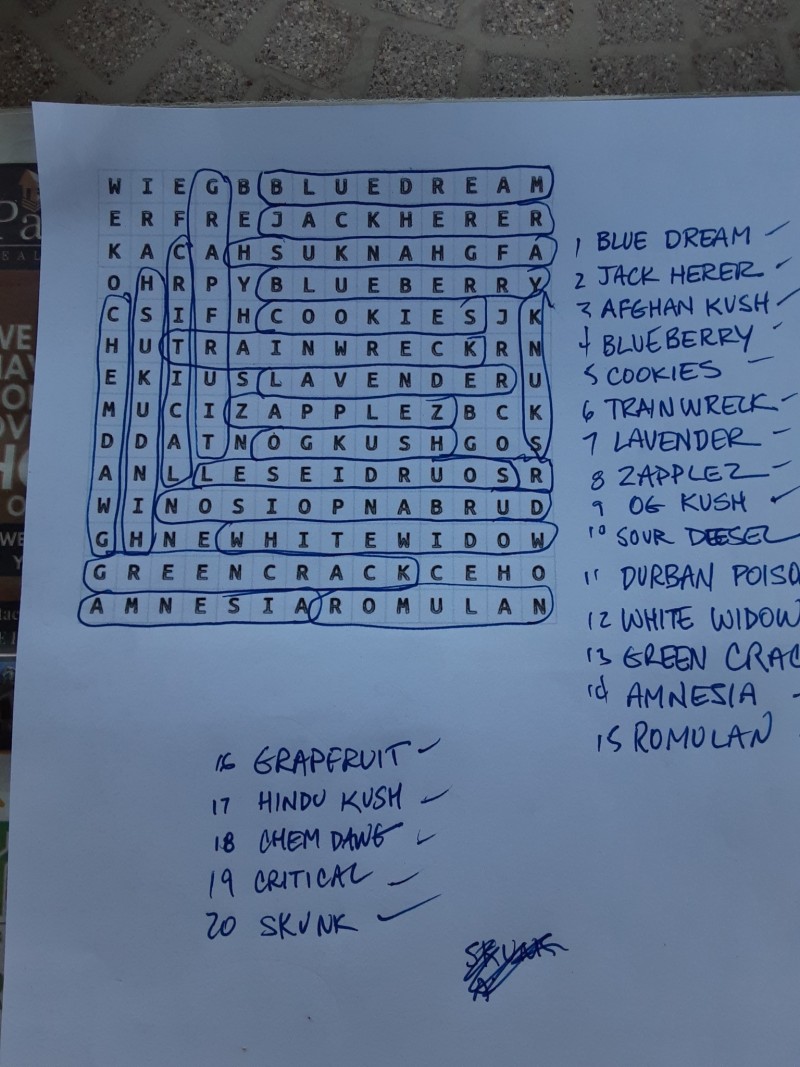 W I E G B B L U E D R E A M
E R F R E J A C K H E R E R
K A C A H S U K N A H G F A
O H R P Y B L U E B E R R Y
C S I F H C O O K I E S J K
H U T R A I N W R E C K R N
E K I U S L A V E N D E R U
M U C I Z A P P L E Z B C K
D D A T N O G K U S H G O S
A N L L E S E I D R U O S R
W I N O S I O P N A B R U D
G H N E W H I T E W I D O W
G R E E N C R A C K C E H O
A M N E S I A R O M U L A N
1 BLUE DREAM
2 JACK HERER
3 AFGHAN KUSH
4 BLUEBERRY
5 COOKIES
6 TRAINWRECK
7 LAVENDER
8 ZAPPLEZ
9 OG KUSH
10 SOUR DEESEL
11 DURBAN POISO
12 WHITE WIDOW
13 GREEN CRAC
14 AMNESIA
15 ROMULAN
16 GRAPFRUIT
17 HINDU KUSH
18 CHEM DAWG
19 CRITICAL
20 SKUNK